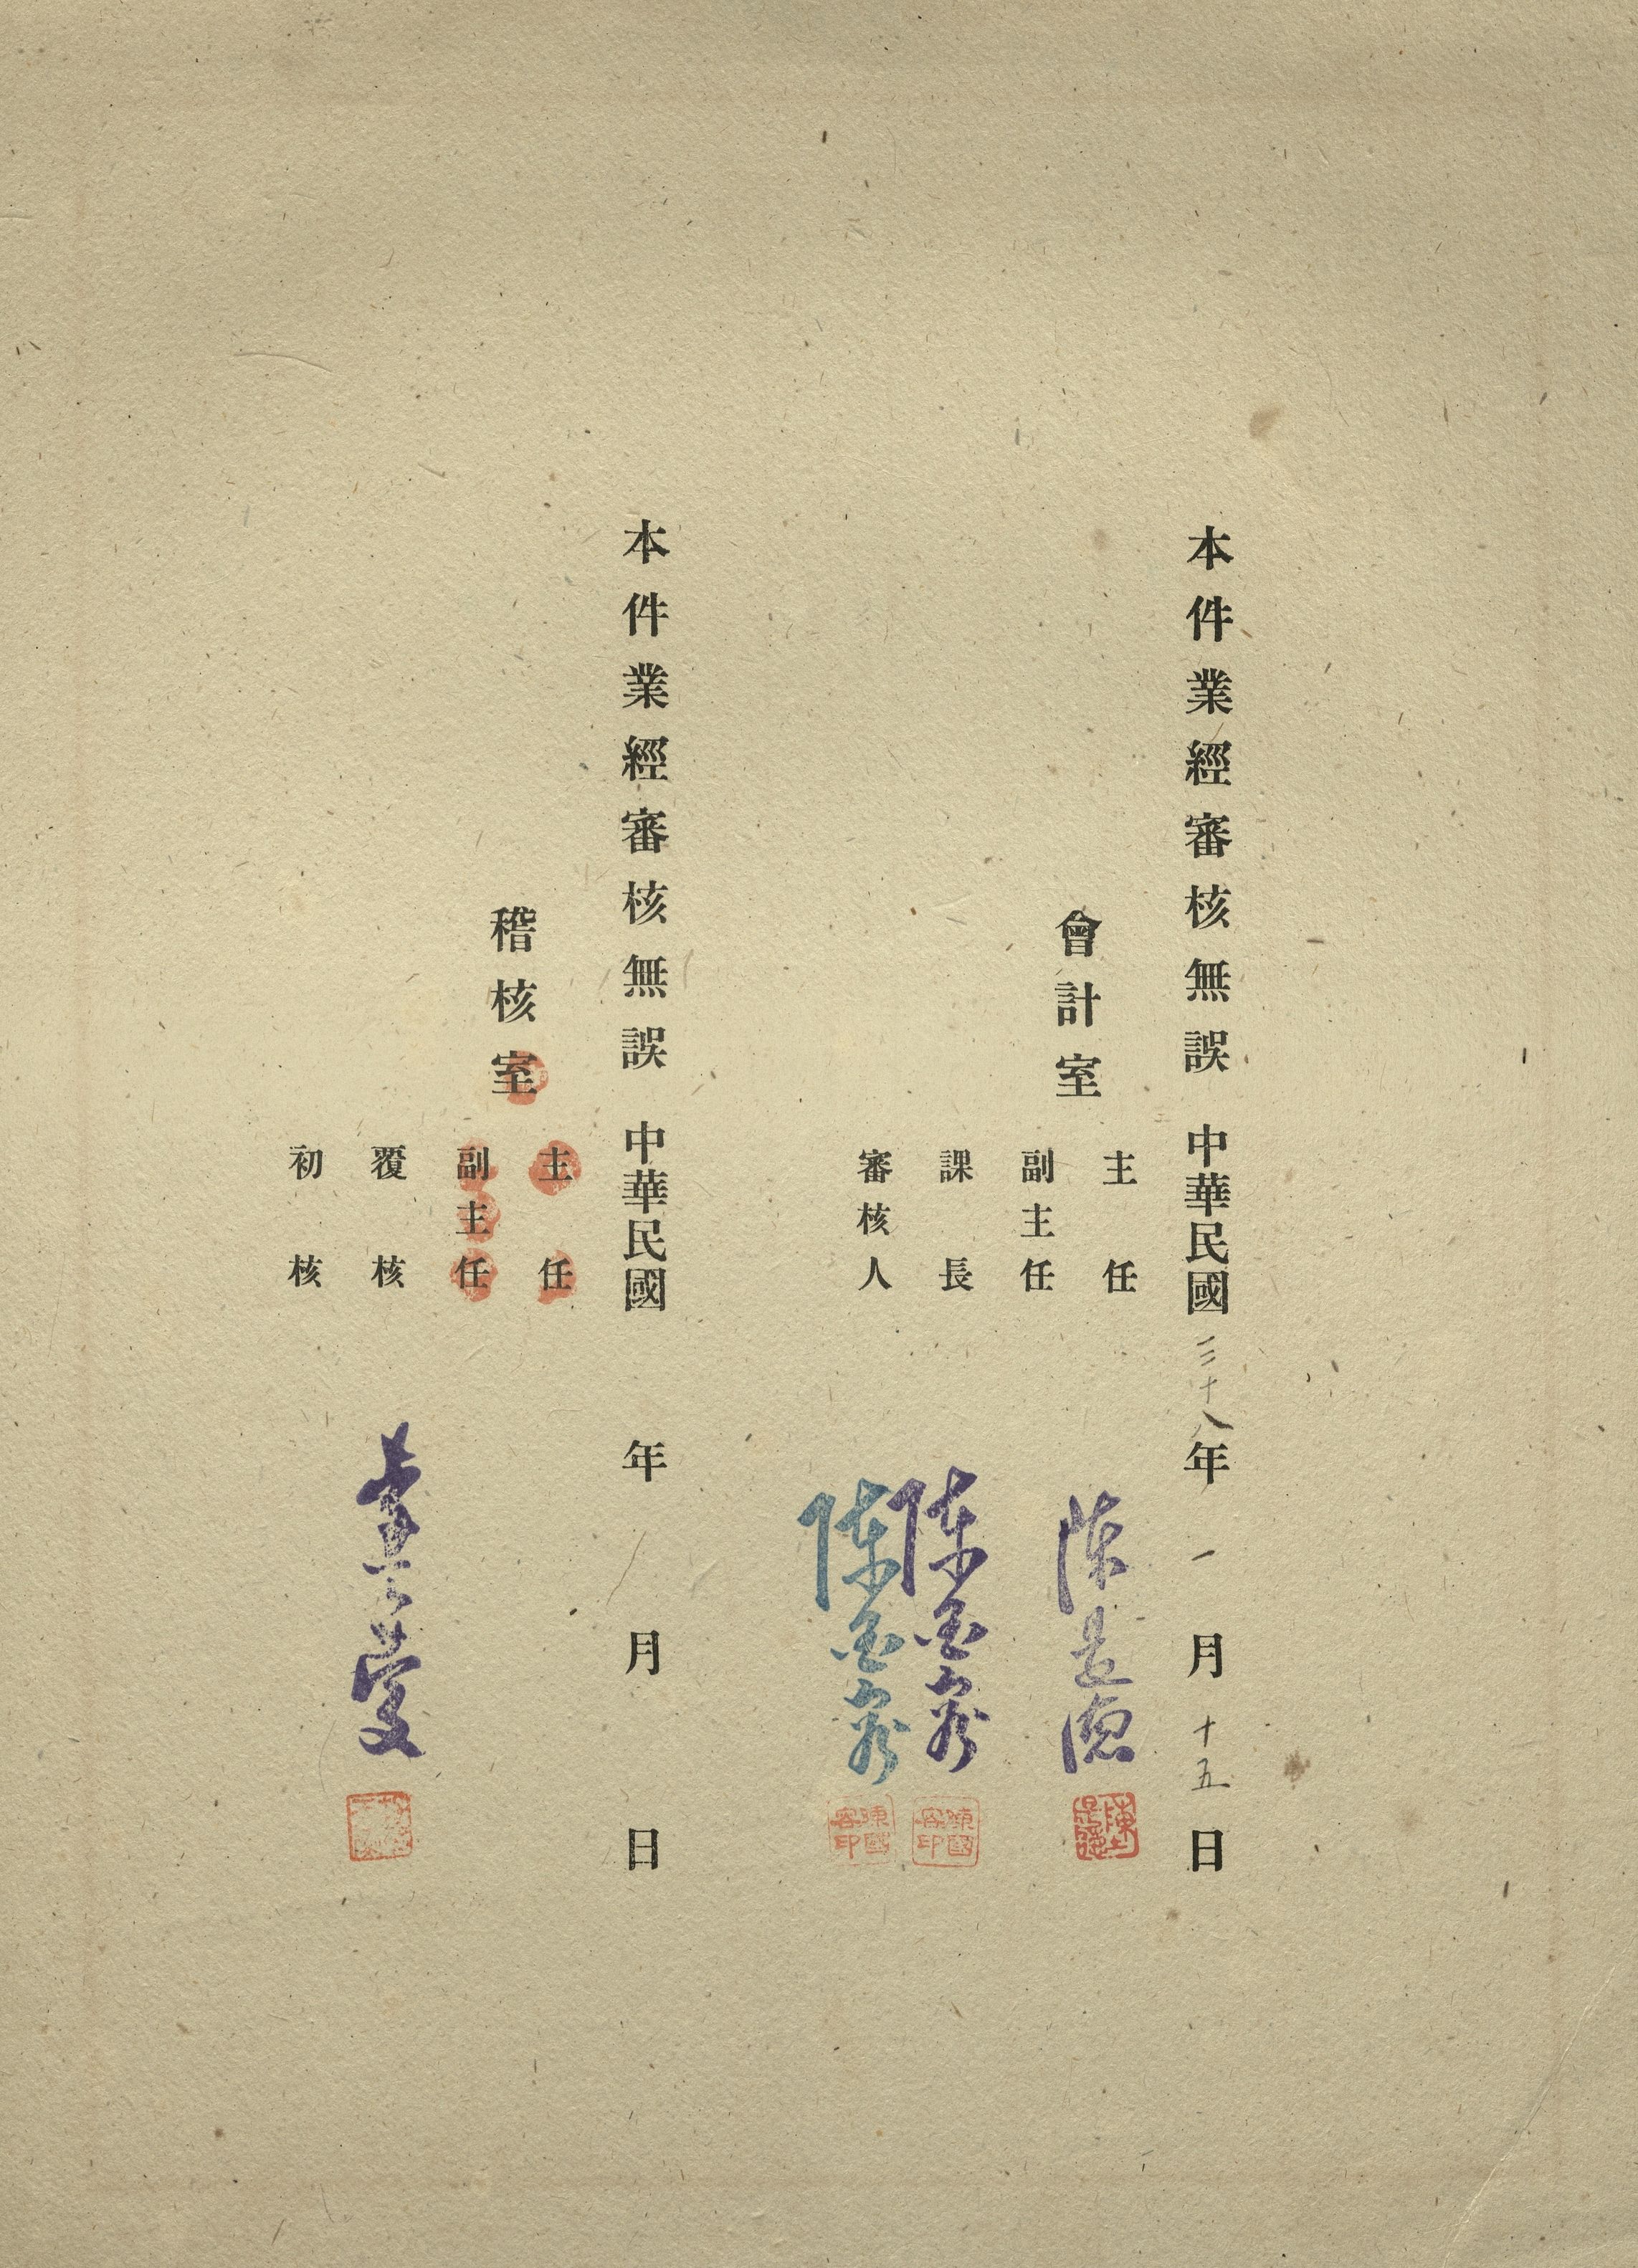 本件業經審核無誤 中華民國三十八年一月十五日
會計室
主任
副主任
課長
審核人
陳國容印
陳國容印
本件業經審核無誤 中華民國 年 月 日
稽核室
主任
副主任
覆核
初核